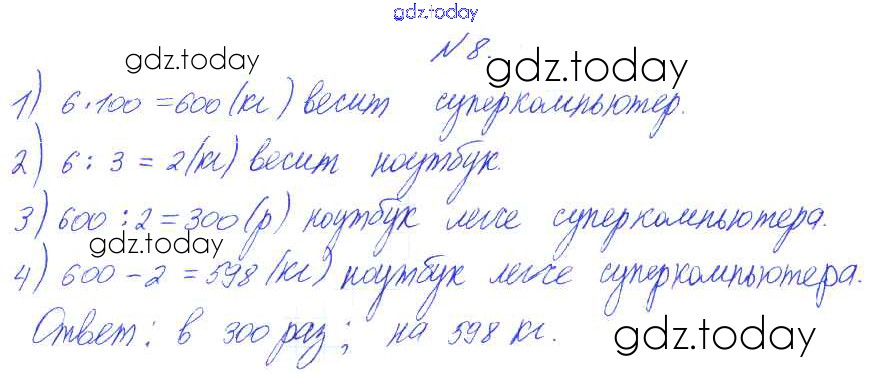 gdz.today
N 8.
gdz.today gdz.today
1) 6·100=600(кг) весит суперкомпьютер.
2) 6 : 3 = 2(кг) весит ноутбук.
3) 600 : 2 = 300(р) ноутбук легче суперкомпьютера.
gdz.today gdz.today
4) 600 - 2 = 598 (кг) ноутбук легче суперкомпьютера.
Ответ: в 300 раз; на 598 кг.
gdz.today